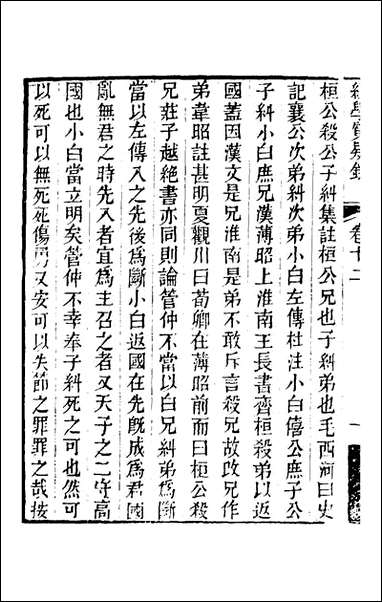 經學質疑錄 卷十二 一
桓公殺公子糾集註桓公兄也子糾弟也毛西河曰史
記襄公次弟糾次弟小白左傳杜注小白僖公庶子公
子糾小白庶兄漢薄昭上淮南王長書齊桓殺弟以返
國蓋因漢文是兄淮南是弟不敢斥言殺兄故改兄作
弟韋昭註甚明夏觀川曰荀卿在薄昭前而曰桓公殺
兄莊子越絕書亦同則論管仲不當以白兄糾弟爲斷
當以左傳入之先後爲斷小白返國在先旣成爲君國
亂無君之時先入者宜爲主召之者又天子之二守高
國也小白當立明矣管仲不幸奉子糾死之可也然可
以死可以無死死傷勇又安可以失節之罪罪之哉按